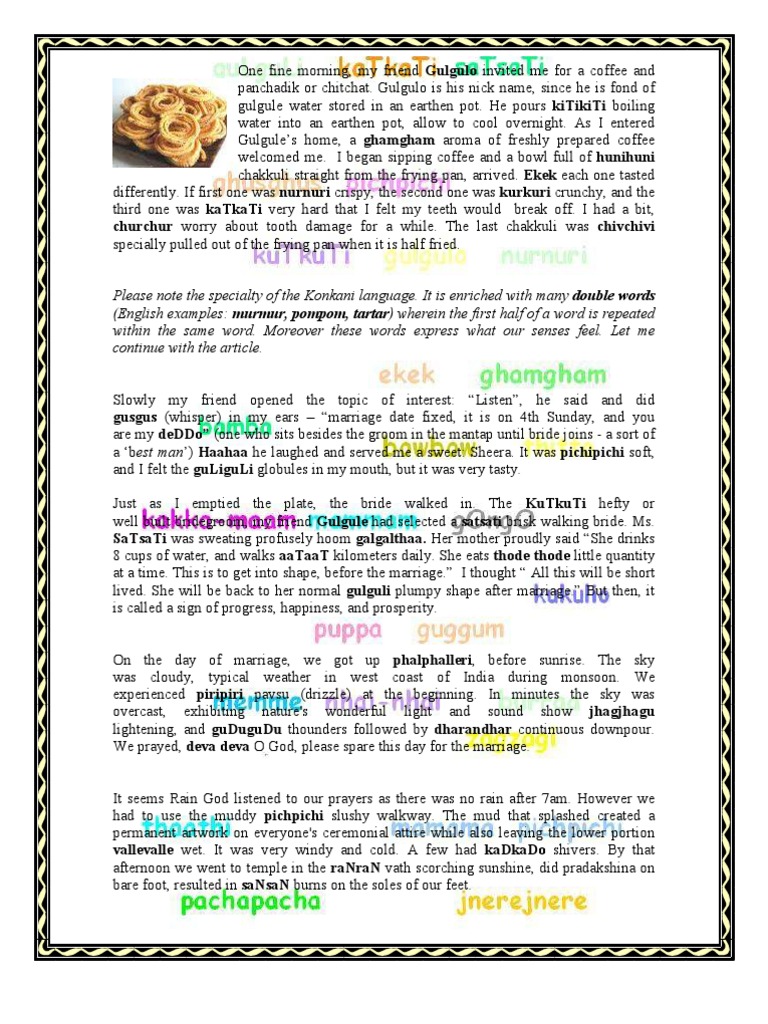 gulguli kaTkaTi saTsaTi
One fine morning, my friend Gulgulo invited me for a coffee and
panchadik or chitchat. Gulgulo is his nick name, since he is fond of
gulgule water stored in an earthen pot. He pours kiTikiTi boiling
water into an earthen pot, allow to cool overnight. As I entered
Gulgule's home, a ghamgham aroma of freshly prepared coffee
welcomed me. I began sipping coffee and a bowl full of hunihuni
chakkuli straight from the frying pan, arrived. Ekek each one tasted
ghusghus pichpichi
differently. If first one was nurnuri crispy, the second one was kurkuri crunchy, and the
third one was kaTkaTi very hard that I felt my teeth would break off. I had a bit,
churchur worry about tooth damage for a while. The last chakkuli was chivchivi
specially pulled out of the frying pan when it is half fried.
kuTkuTi gulgulo nurnuri
Please note the specialty of the Konkani language. It is enriched with many double words
(English examples: murmur, pompom, tartar) wherein the first half of a word is repeated
within the same word. Moreover these words express what our senses feel. Let me
continue with the article.
ekek ghamgham
Slowly my friend opened the topic of interest: “Listen”, he said and did
gusgus (whisper) in my ears – “marriage date fixed, it is on 4th Sunday, and you
bamba
are my deDDo” (one who sits besides the groom in the mantap until bride joins - a sort of
a ‘best man’) Haahaa he laughed and served me a sweet: Sheera. It was pichipichi soft,
bowbow
and I felt the guLiguLi globules in my mouth, but it was very tasty.
Just as I emptied the plate, the bride walked in. The KuTkuTi hefty or
well built bridegroom, my friend Gulgule had selected a satsati brisk walking bride. Ms.
kakka-maam mammam gOngO
SaTsaTi was sweating profusely hoom galgalthaa. Her mother proudly said “She drinks
8 cups of water, and walks aaTaaT kilometers daily. She eats thode thode little quantity
at a time. This is to get into shape, before the marriage.” I thought “ All this will be short
lived. She will be back to her normal gulguli plumpy shape after marriage.” But then, it
kukullo
is called a sign of progress, happiness, and prosperity.
puppa guggum
On the day of marriage, we got up phalphalleri, before sunrise. The sky
was cloudy, typical weather in west coast of India during monsoon. We
experienced piripiri pavsu (drizzle) at the beginning. In minutes the sky was
memme nhai-nhai
overcast, exhibiting nature's wonderful light and sound show jhagjhagu
lightening, and guDuguDu thounders followed by dharandhar continuous downpour.
zagzagi
We prayed, deva deva O God, please spare this day for the marriage.
It seems Rain God listened to our prayers as there was no rain after 7am. However we
had to use the muddy pichpichi slushy walkway. The mud that splashed created a
thaathi mamama pichpichi
permanent artwork on everyone's ceremonial attire while also leaving the lower portion
vallevalle wet. It was very windy and cold. A few had kaDkaDo shivers. By that
afternoon we went to temple in the raNraN vath scorching sunshine, did pradakshina on
bare foot, resulted in saNsaN burns on the soles of our feet.
pachapacha jnerejnere